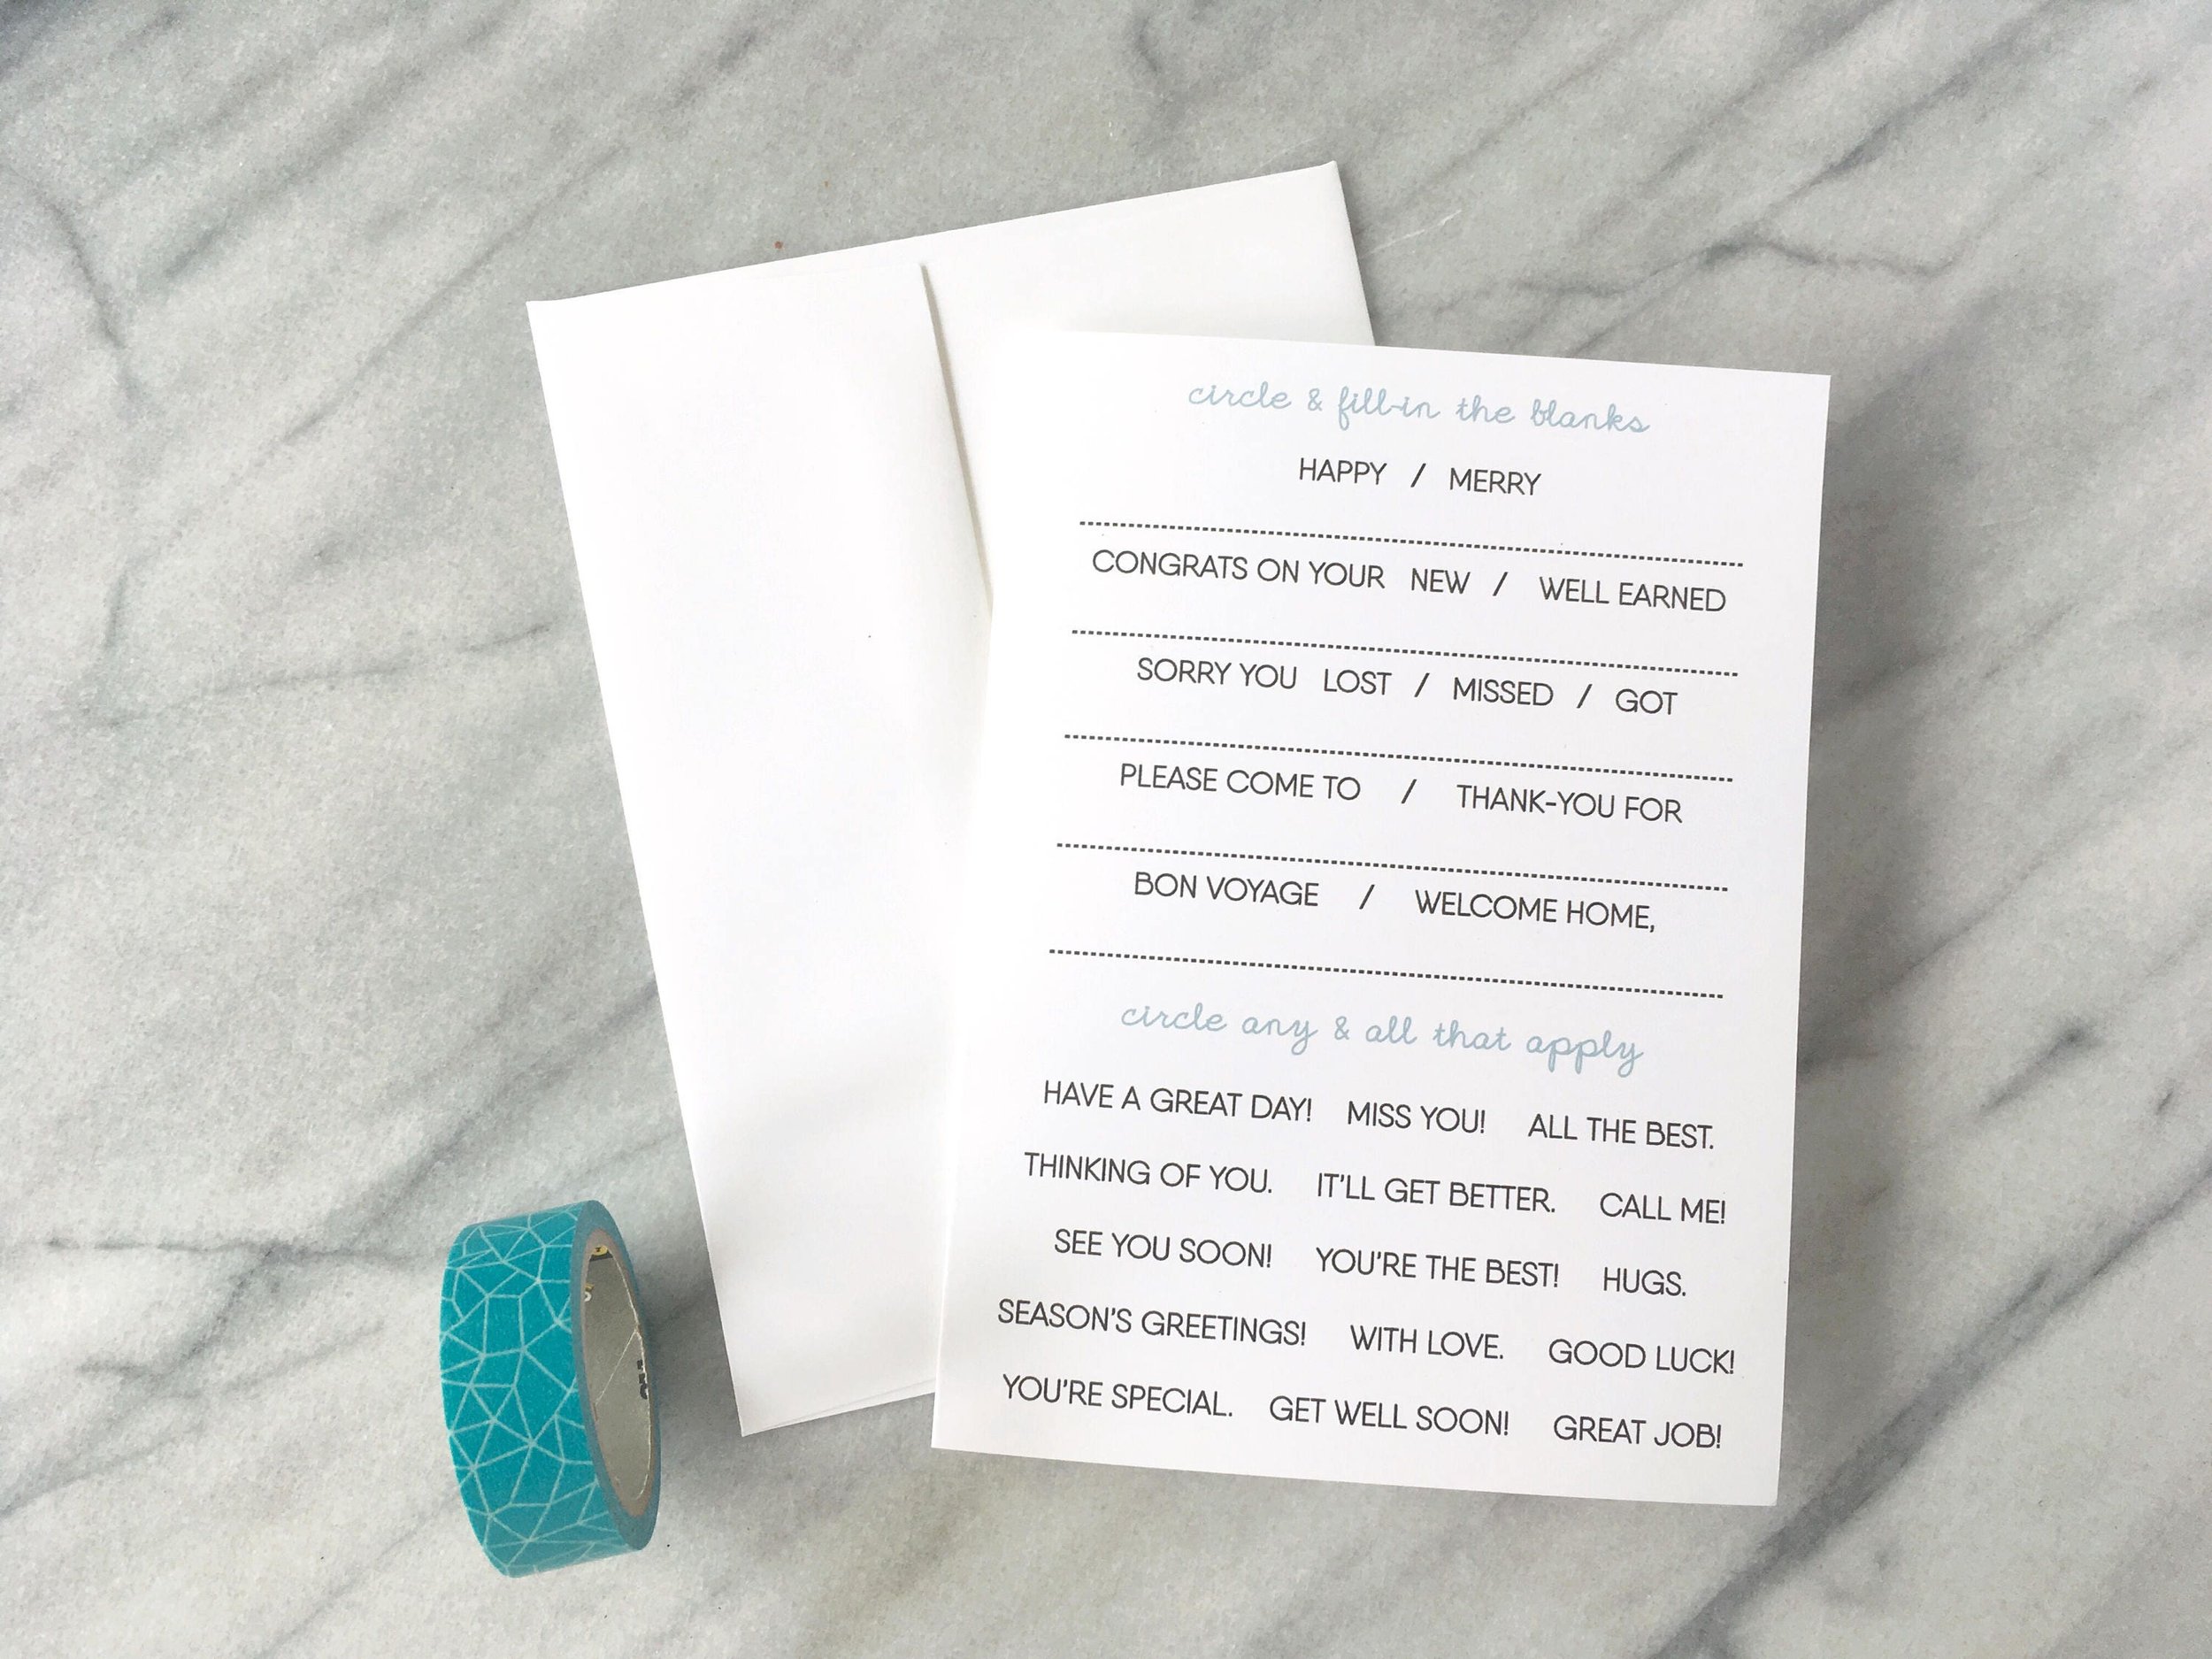 circle & fill-in the blanks
HAPPY / MERRY
CONGRATS ON YOUR NEW / WELL EARNED
SORRY YOU LOST / MISSED / GOT
PLEASE COME TO / THANK-YOU FOR
BON VOYAGE / WELCOME HOME,
circle any & all that apply
HAVE A GREAT DAY! MISS YOU! ALL THE BEST.
THINKING OF YOU. IT'LL GET BETTER. CALL ME!
SEE YOU SOON! YOU'RE THE BEST! HUGS.
SEASON'S GREETINGS! WITH LOVE. GOOD LUCK!
YOU'RE SPECIAL. GET WELL SOON! GREAT JOB!